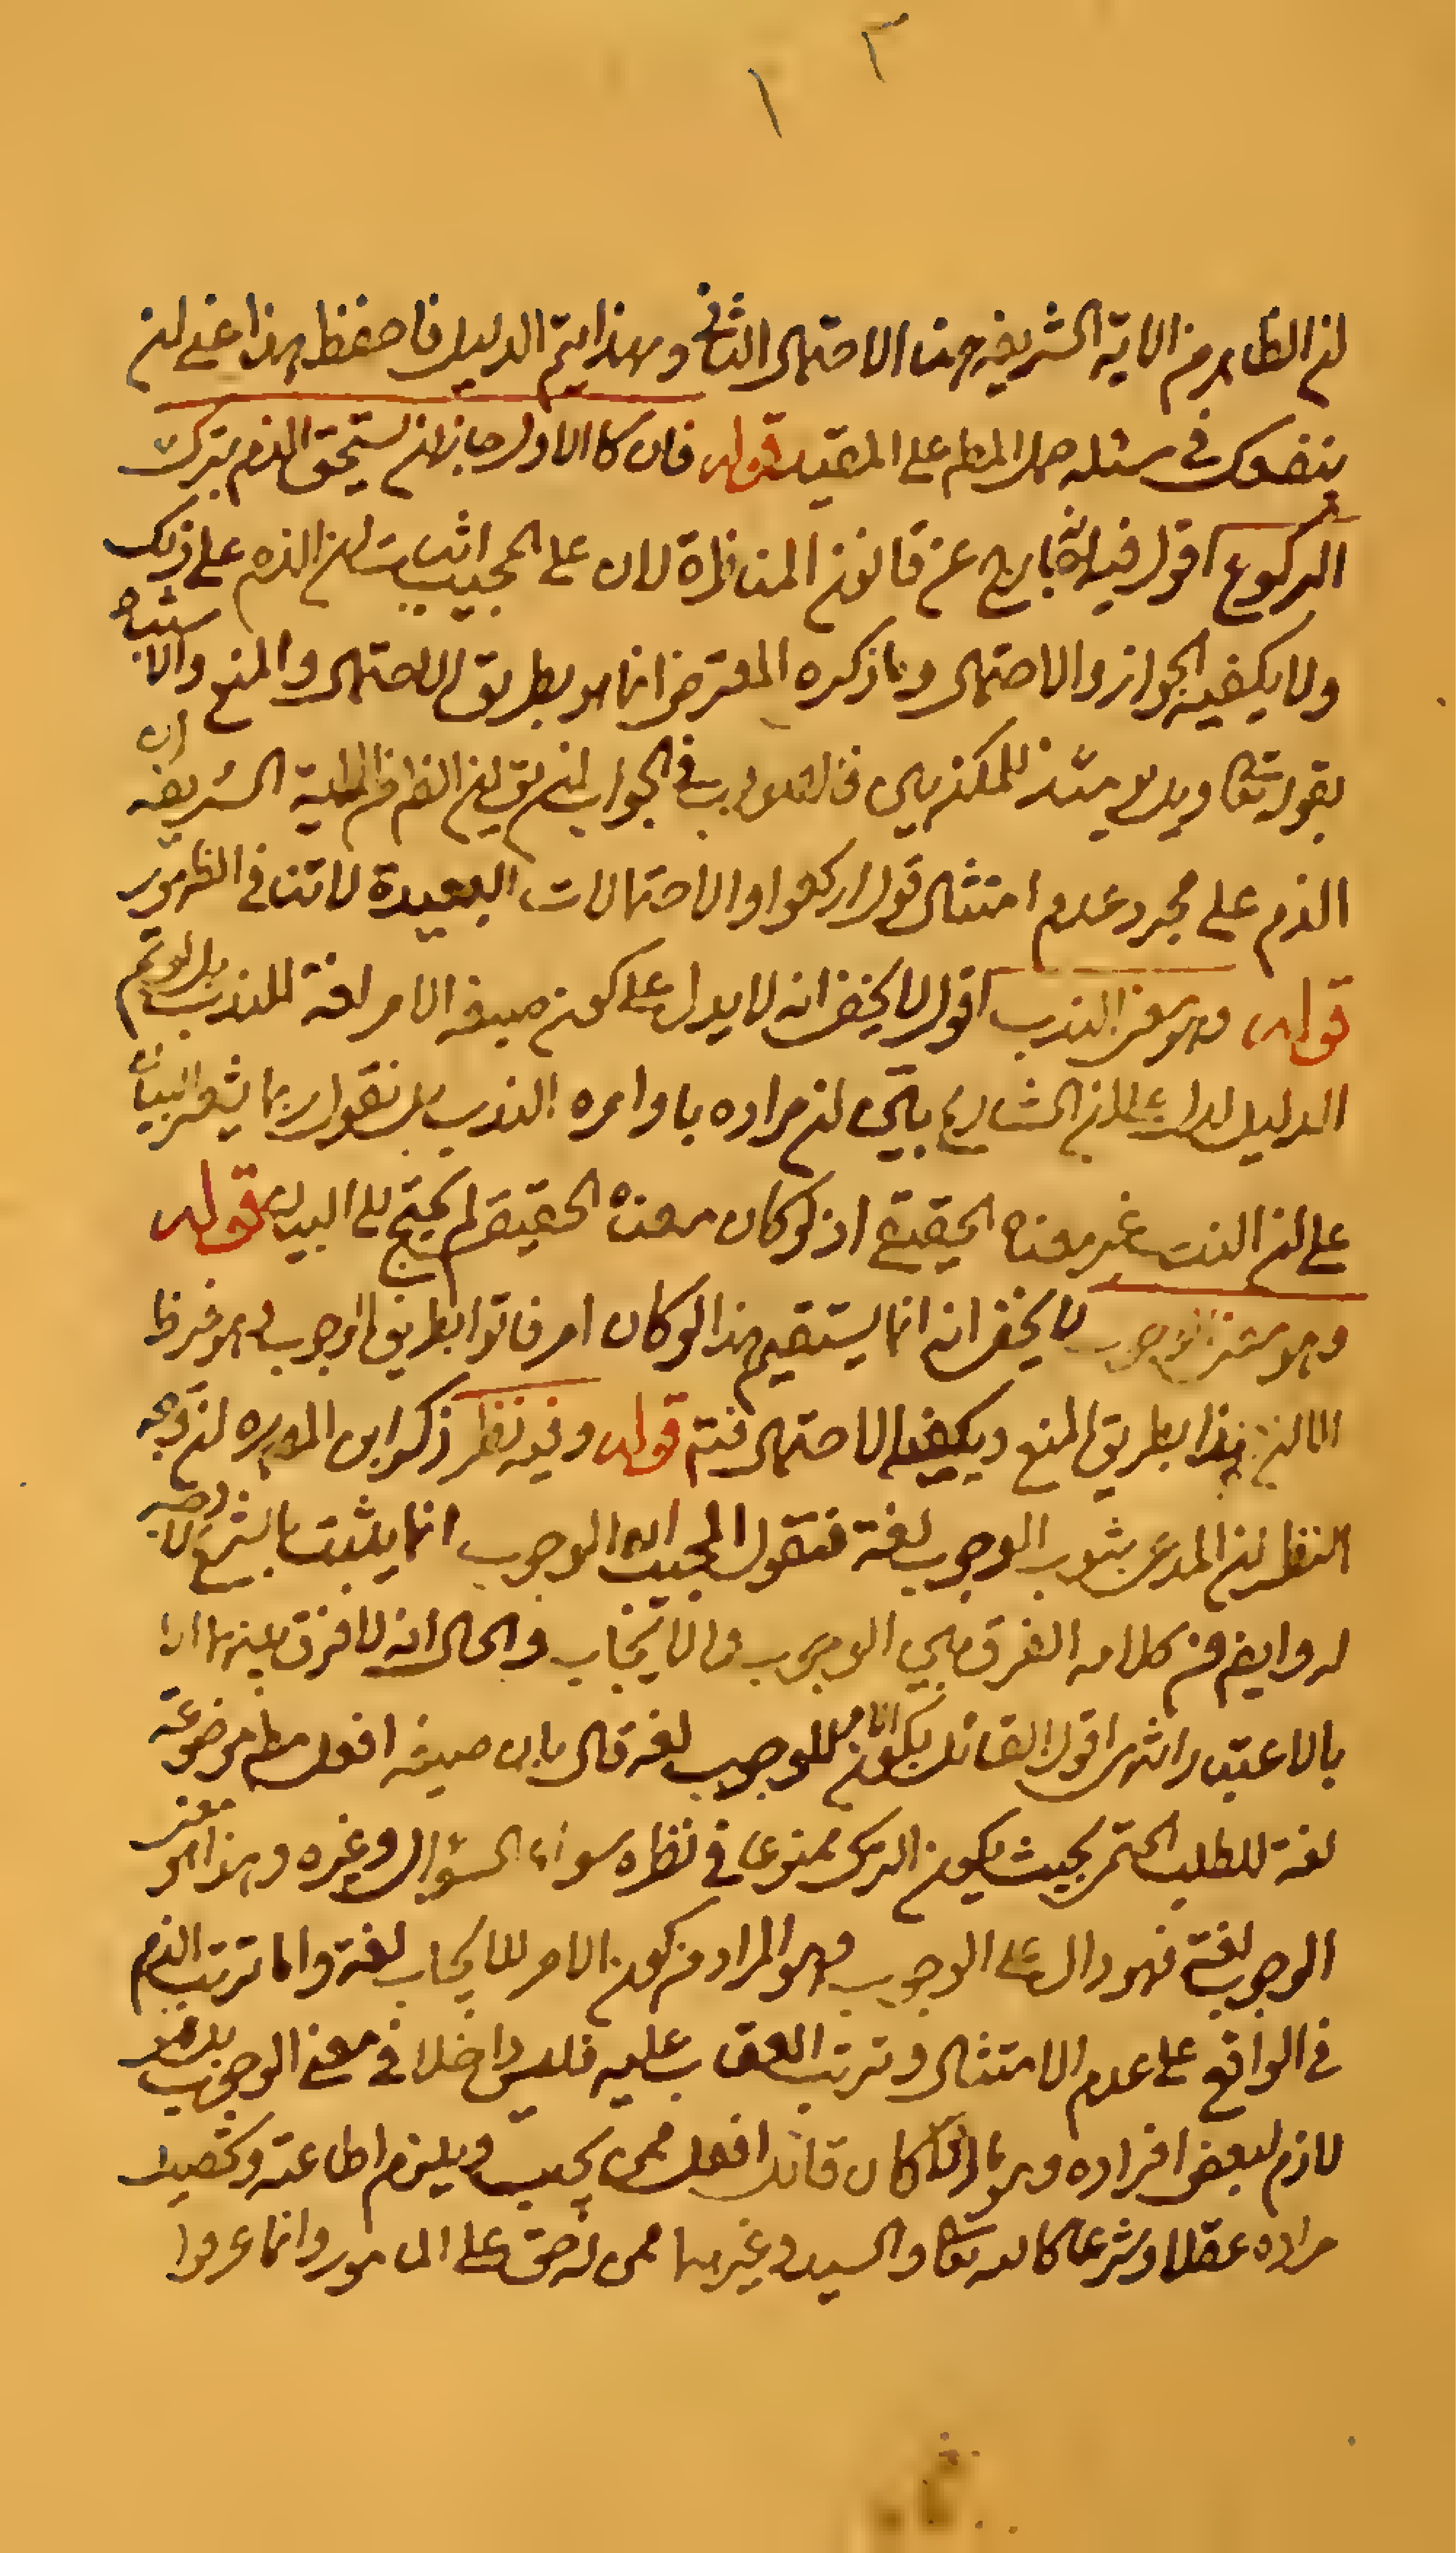 ان الظاهر من الآية الشريفة هنا الاحتمال الثاني وبهذا يتم الدليل فاحفظ هذا عني لان
ينفعك في مسئلة حمل المطلق على المقيد قوله فان كان الاول جاز ان يستحق الذم بترك
الركوع اقول فيه انه خارج عن قانون المناظرة لان على المجيب اثبات ان الذم على ذلك
ولا يكفيه الجواز والاحتمال وما ذكره المعترض انما هو بطريق الاحتمال والمنع والاستناد
بقوله تعا ويل يومئذ للمكذبين فالصواب في الجواب ان يق ان الظ من الاية الشريفة ان
الذم على مجرد عدم امتثال قول اركعوا والاحتمالات البعيدة لا تنافي الظهور
قوله وهو معنى الندب اقول لا يخفى انه لا يدل على كون صيغة الامر لغة للندب بل لو تم
الدليل لدل على ان الشارع بيّن ان مراده باوامره الندب بل نقول ربما يشعر البيان
على ان الندب غير معناه الحقيقي اذ لو كان معناه الحقيقي لم يحتج الى البيان قوله
وهو معنى الوجوب لا يخفى انه انما يستقيم هذا لو كان امر فاتوا بطريق الوجوب وهو غير ظ
الا ان هذا بطريق المنع ويكفيه الاحتمال فتم قوله وفيه نظر ذكر ابن المصره ان وجه
النظر ان المدعى ثبوت الوجوب لغة فنقول المجيب ان الوجوب انما يثبت بالشرع لا وجه
له وايضا من كلامه الفرق بين الوجوب والايجاب والحال انه لا فرق بينهما الا
بالاعتبار انتهى اقول القائل بكون الامر للوجوب لغة قال بان صيغة افعل مطلقا موضوعة
لغة للطلب الحتمي بحيث يكون الترك ممنوعا في نظره سواء السؤال وغيره وهذا هو معنى
الوجوب لغة فهو دال على الوجوب وهو المراد من كون الامر للايجاب لغة واما ترتب الذم
في الواقع على عدم الامتثال وترتب العقاب عليه فليس داخلا في معنى الوجوب بل هو
لازم لبعض افراده وهو ما اذا كان قائل افعل ممن يجب ويلزم اطاعته وتحصيل
مراده عقلا وشرعا كالله تعا والسيد وغيرهما ممن له حق على المامور وانما عرفوا